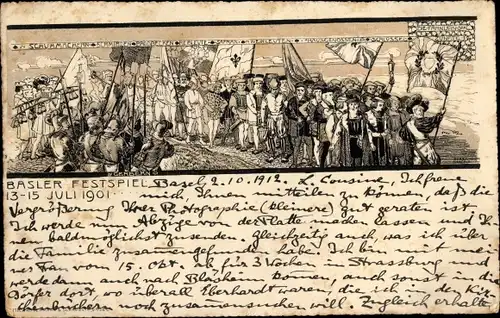 BASLER FESTSPIEL
13-15 JULI 1901.
Basel 2.10.1912. L. Cousine, Ich freue
mich, Ihnen mitteilen zu können, daß die
Vergrößerung Ihrer Photographie (kleinere) gut geraten ist
Ich werde nun Abzüge von der Platte machen lassen und Ih
nen baldmöglichst zusenden. Gleichzeitig auch, was ich über
die Familie zusammengefunden habe. Ich bin mit mei
ner Frau vom 15. Okt. für 3 Wochen in Strassburg und
werde dann auch nach Bläsheim kommen, und sonst in die
Dörfer dort, wo überall Eberhardt waren, die ich in den Kir
chenbüchern noch zusammensuchen will. Zugleich erhalte